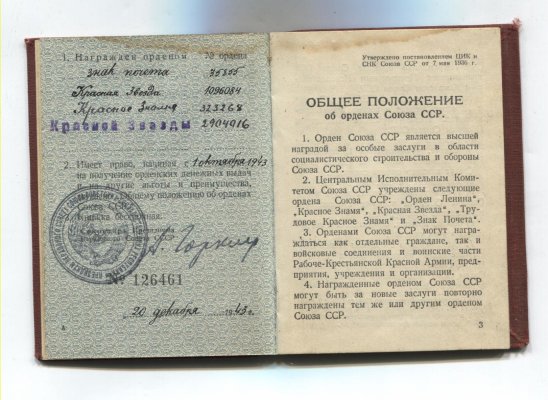 1. Награжден орденом № ордена
Знак почета 35805
Красная Звезда 1096084
Красное Знамя 323268
Красной Звезды 2904916
2. Имеет право, начиная с 1 октября 1943
на получение орденских денежных выдач
и на другие льготы и преимущества,
общему положению об орденах
Союза
Книжка бессрочная.
Секретарь Президиума
Верховного Совета
А. Горкин
№ 126461
20 декабря 1943 г.
Утверждено постановлением ЦИК и
СНК Союза ССР от 7 мая 1936 г.
ОБЩЕЕ ПОЛОЖЕНИЕ
об орденах Союза ССР.
1. Орден Союза ССР является высшей
наградой за особые заслуги в области
социалистического строительства и обороны
Союза ССР.
2. Центральным Исполнительным Коми-
тетом Союза ССР учреждены следующие
ордена Союза ССР: „Орден Ленина",
„Красное Знамя", „Красная Звезда", „Тру-
довое Красное Знамя" и „Знак Почета".
3. Орденами Союза ССР могут награ-
ждаться как отдельные граждане, так и
войсковые соединения и воинские части
Рабоче-Крестьянской Красной Армии, пред-
приятия, учреждения и организации.
4. Награжденные орденом Союза ССР
могут быть за новые заслуги повторно
награждены тем же или другим орденом
Союза ССР.
3